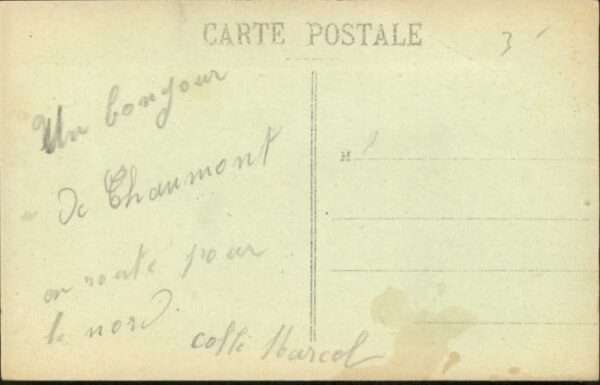 CARTE POSTALE
3
Un bonjour
de Chaumont
en route pour
le nord.
M
Marcel